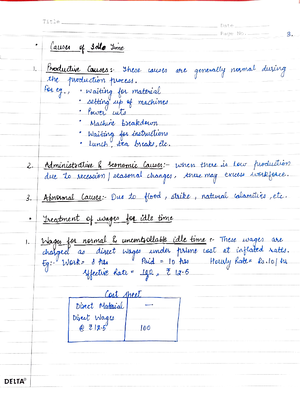 Title
Date
Page No. 3.
• Causes of Idle Time
1. Productive Causes:- These causes are generally normal during
the production process.
For eg., • Waiting for material
• setting up of machines
• Power cuts
• Machine breakdown
• Waiting for instructions
• Lunch, tea breaks, etc.
2. Administrative & Economic Causes:- When there is low production
due to recession / seasonal changes, there may excess workforce.
3. Abnormal Causes:- Due to flood, strike, natural calamities, etc.
• Treatment of wages for idle time
1. Wages for normal & uncontrollable idle time :- These wages are
charged as direct wages under prime cost at inflated rates.
Eg:- Work = 8 hrs Paid = 10 hrs Hourly Rate = Rs.10/hr
Effective Rate = 100/8 = ₹ 12.5
Cost sheet
Direct Material —
Direct Wages
@ ₹ 12.5 100
DELTA